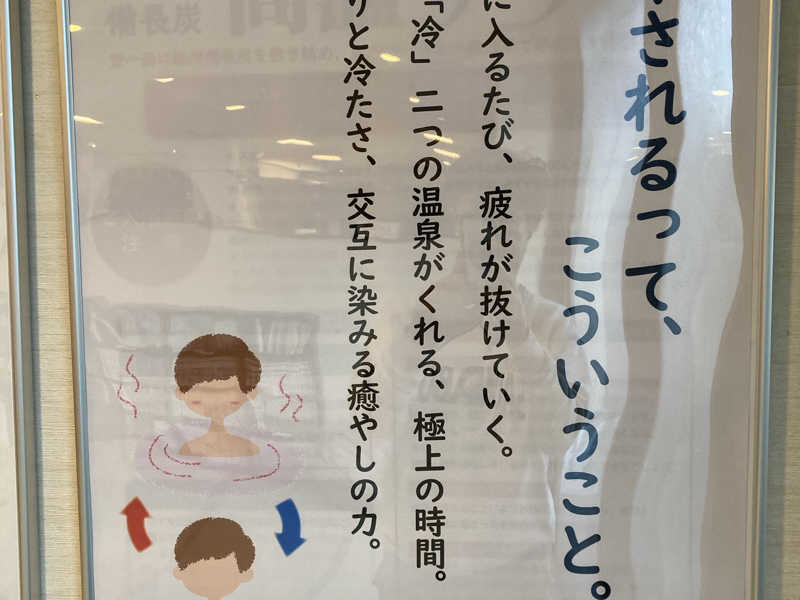 されるって、
こういうこと。
に入るたび、疲れが抜けていく。
「冷」二つの温泉がくれる、極上の時間。
りと冷たさ、交互に染みる癒やしの力。
備長炭